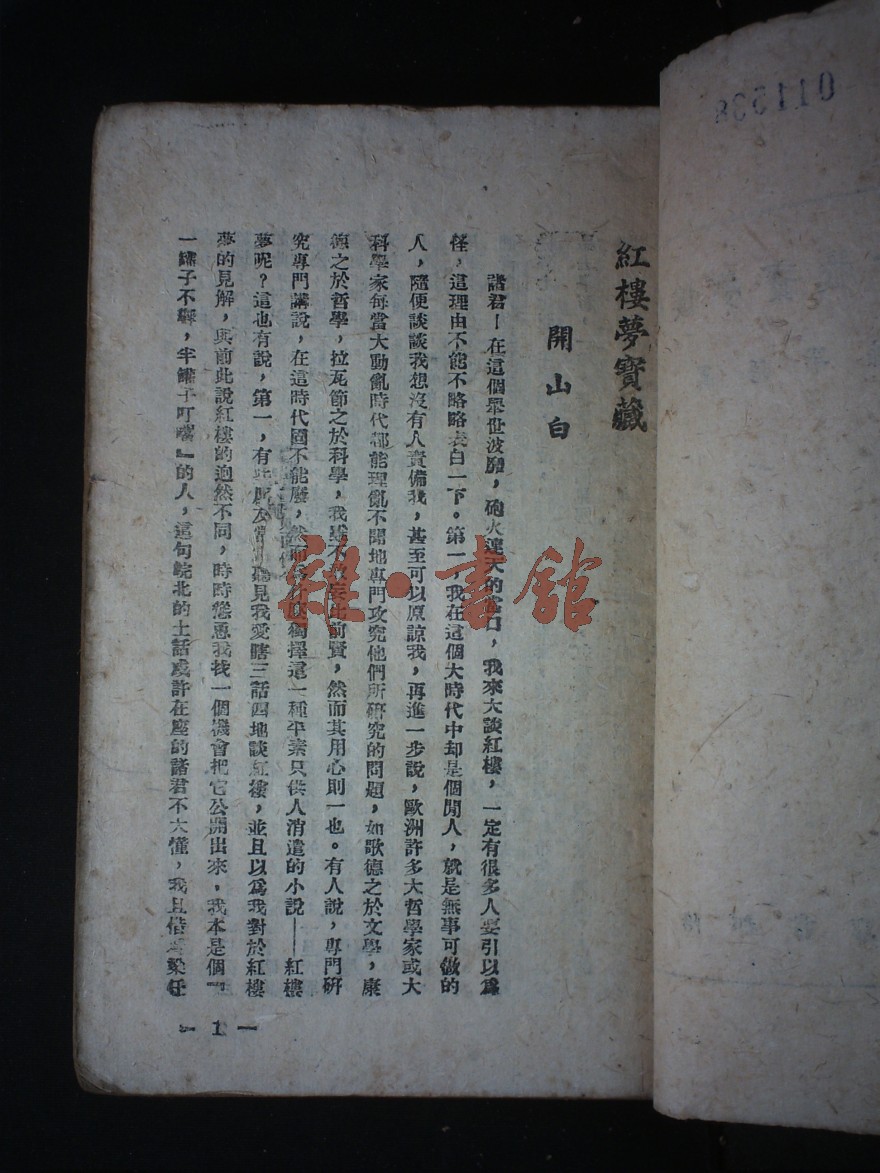 011538
紅樓夢寶藏
開山白
諸君！在這個舉世波騰，砲火連天的當口，我來大談紅樓，一定有很多人要引以爲
怪，這理由不能不略略表白一下。第一，我在這個大時代中却是個閒人，就是無事可做的
人，隨便談談我想沒有人責備我，甚至可以原諒我，再進一步說，歐洲許多大哲學家或大
科學家每當大動亂時代都能理亂不聞地專門攻究他們所研究的問題，如歌德之於文學，康
德之於哲學，拉瓦節之於科學，我雖不敢妄比前賢，然而其用心則一也。有人說，專門研
究專門講說，在這時代國不能廢，然而爲什麼獨擇這一種平素只供人消遣的小說——紅樓
夢呢？這也有說，第一，有些朋友常常聽見我愛瞎三話四地談紅樓，並且以爲我對於紅樓
夢的見解，與前此說紅樓的迥然不同，時時慫恿我找一個機會把它公開出來，我本是個『
一罐子不響，半罐子叮噹』的人，這句皖北的土話或許在座的諸君不大懂，我且借梁任
— 1 —
雜·書館